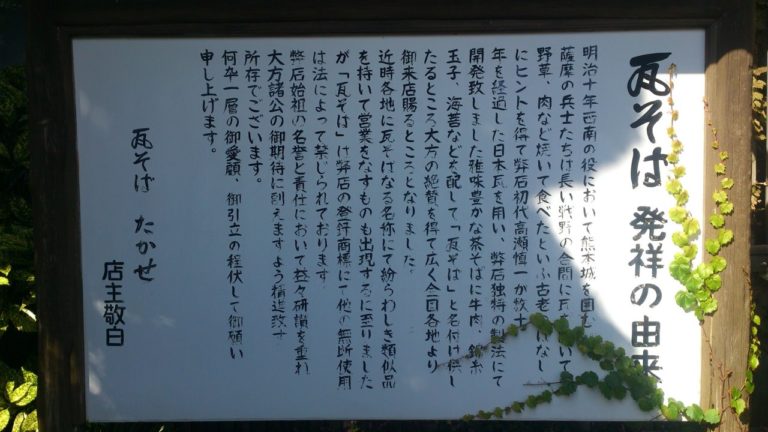 瓦そば 発祥の由来
明治十年西南の役において熊本城を囲む
薩摩の兵士たちは長い戦野の合間に瓦を いて
野草、肉など焼いて食べたといふ古老 はなし
にヒントを得て弊店初代高瀬慎一が数十
年を経過した日本瓦を用い、弊店独特の製法にて
開発致しました雅味豊かな茶そばに牛肉、錦糸
玉子、海苔などを配して「瓦そば」と名付け供し
たるところ大方の絶賛を得て広く全国各地より
御来店賜るところとなりました。
近時各地に瓦そばなる名称にて紛らわしき類似品
を持いて営業をなすものも出現するに至りました
が「瓦そば」は弊店の登録商標にて他の無断使用
は法によって禁じられております。
弊店始祖の名誉と責任において益々研鑽を重ね
大方諸公の御期待に副えますよう精進致す
所存でございます。
何卒一層の御愛顧、御引立の程伏して御願い
申し上げます。
瓦そば たかせ
店主敬白